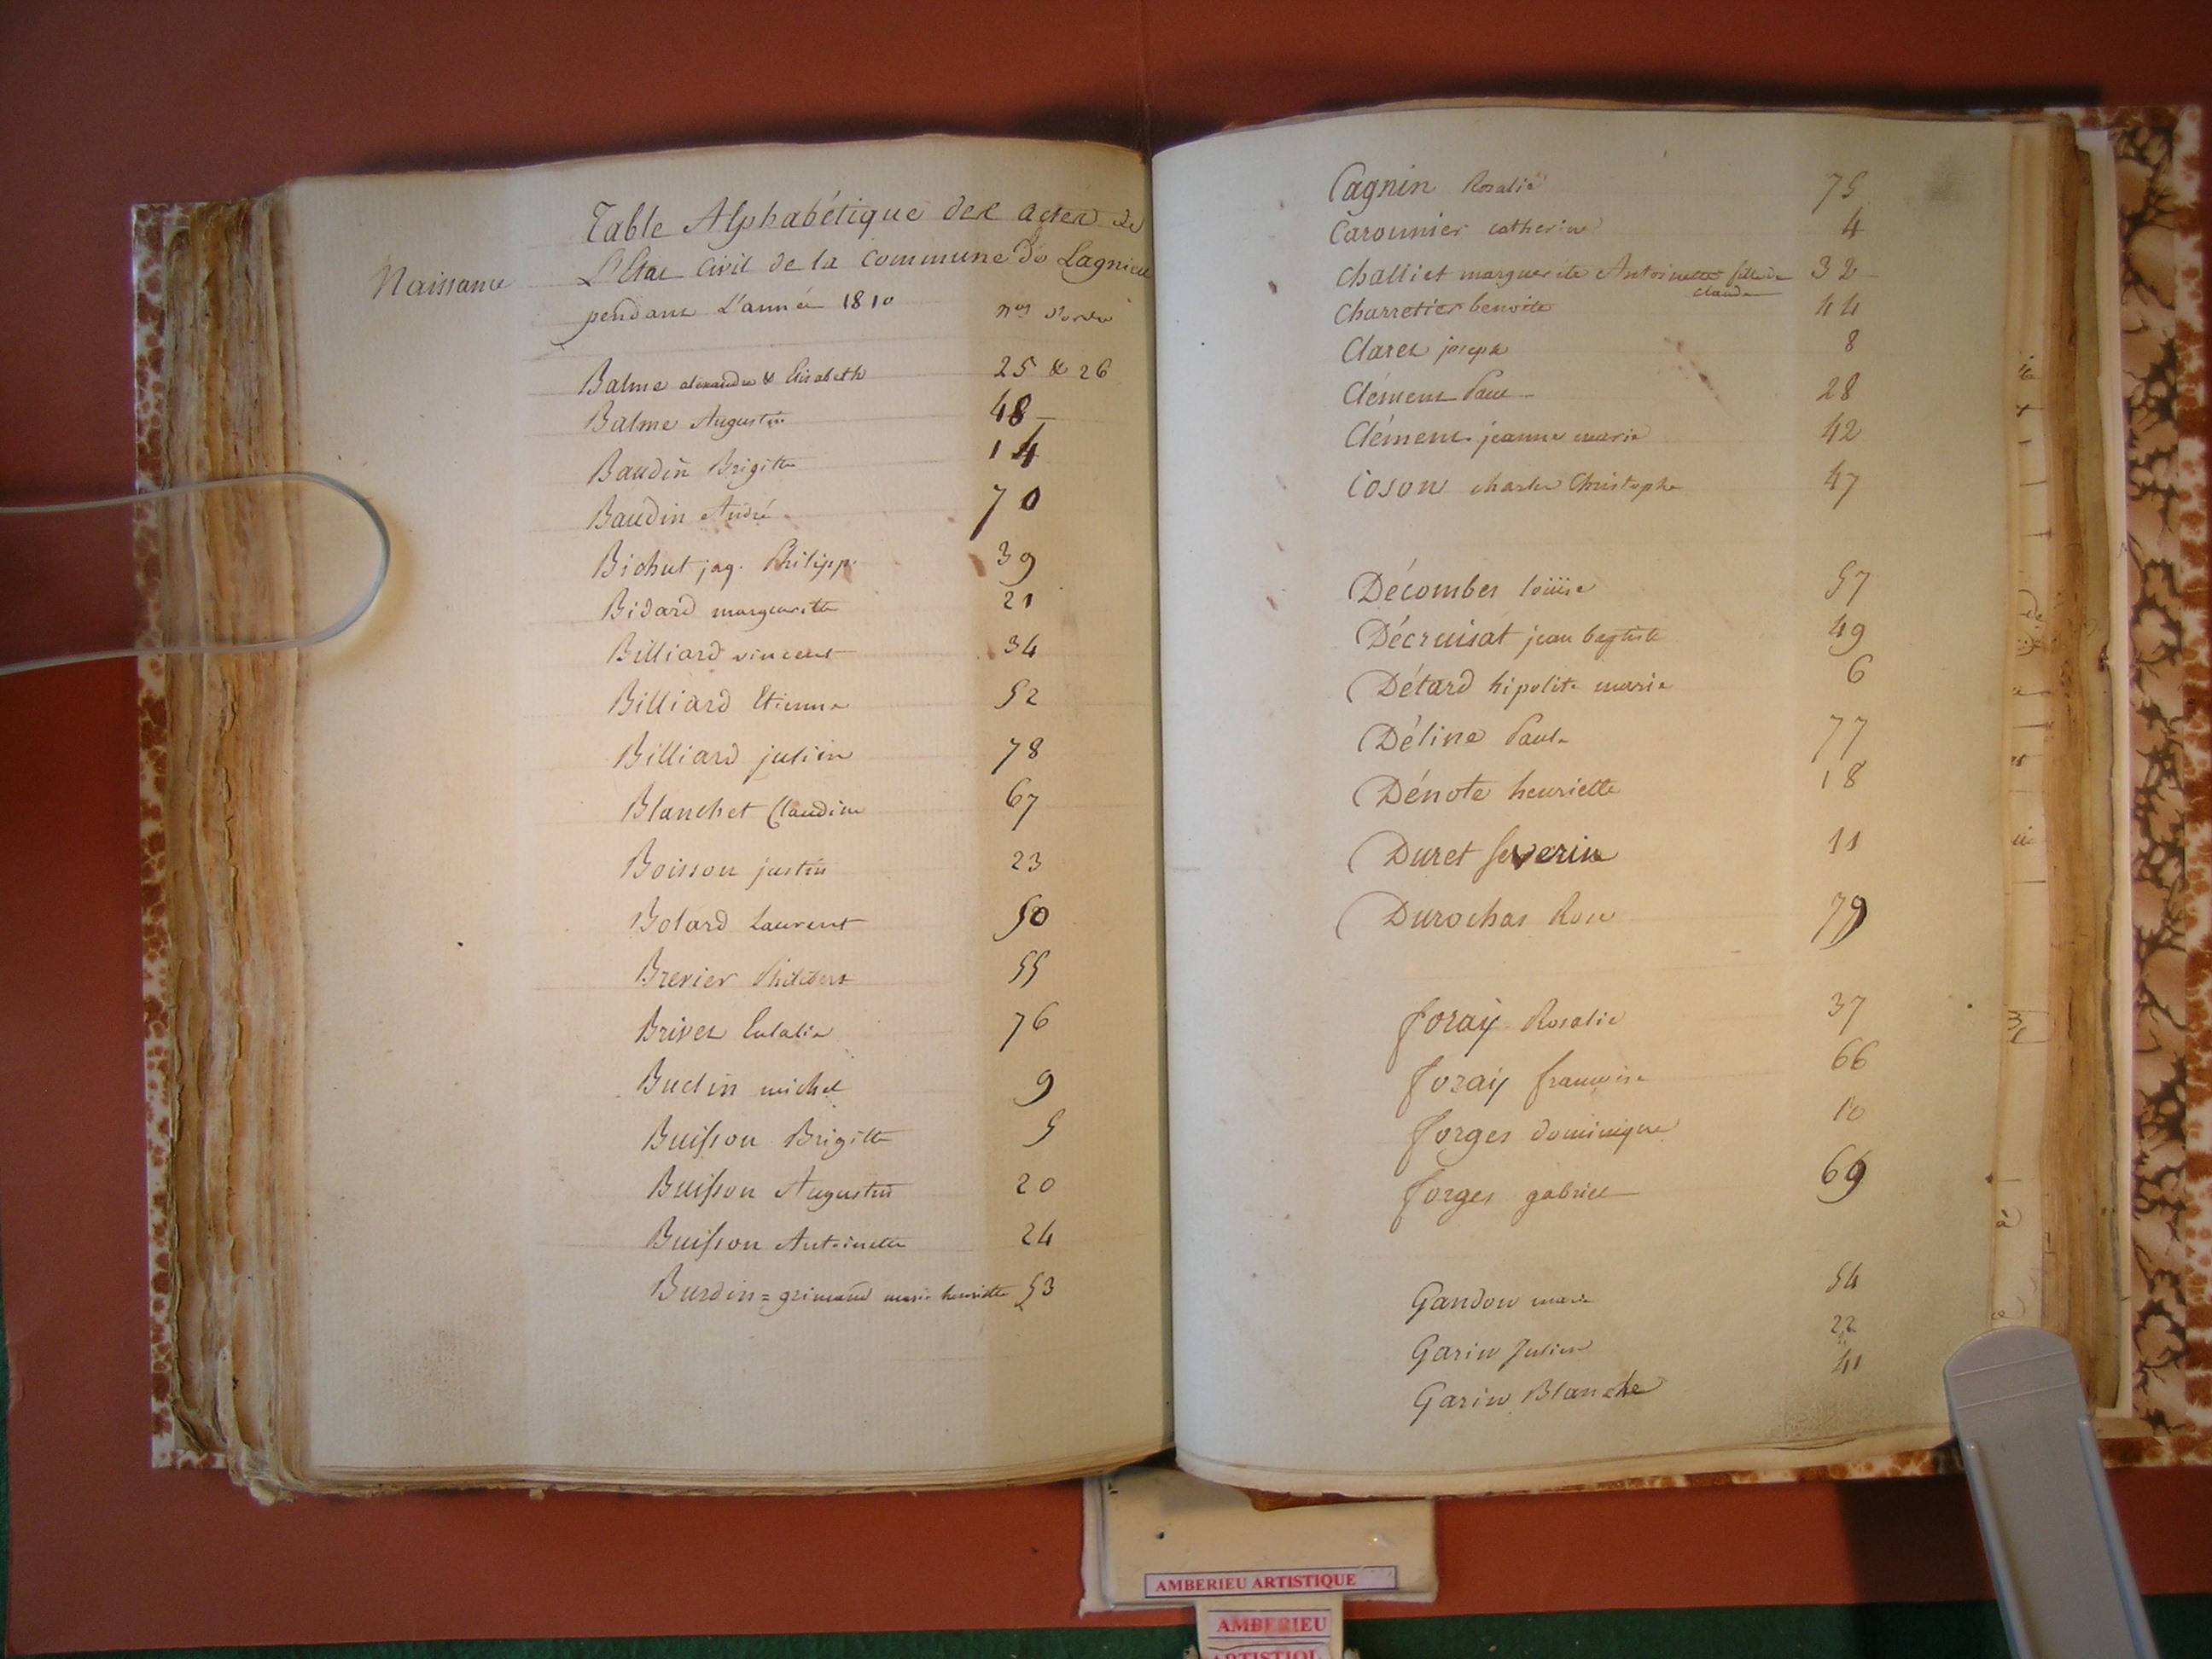 Naissance
Table Alphabétique des actes de
L'Etat Civil de la Commune de Lagnieu
pendant L'année 1810
nos d'ordre
Balme alexandre & Elisabeth 25 & 26
Balme Augustin 48
Baudin Brigitte 14
Baudin André 70
Bichut jaq. Philipp. 39
Bidard marguerite 21
Billiard vincent 34
Billiard Etienne 52
Billiard julien 78
Blanchet Claudine 67
Boisson justin 23
Bolard Laurent 50
Brevier Philibert 55
Brivet Eulalie 76
Buclin michel 9
Buisson Brigitte 5
Buisson Augustin 20
Buisson Antoinette 24
Burdin = grimaud marie henriette 53
Cagnin Rosalie 75
Carounier catherine 4
Challiet marguerite Antoinette fille de claude 32
Charretier benoite 44
Claret joseph 8
Clément Paul 28
Clément jeanne marie 42
Coson charles Christophe 47
Décombes loüise 57
Décruisat jean baptiste 49
Détard hipolite marie 6
Déline Paul 77
Dénote henriette 18
Duret Severin 11
Durochas Rose 79
foray Rosalie 37
foray francoise 66
forges dominique 10
forges gabriel 69
Gandon marie 54
Garin Julien 22
Garin Blanche 41
AMBERIEU ARTISTIQUE
AMBERIEU